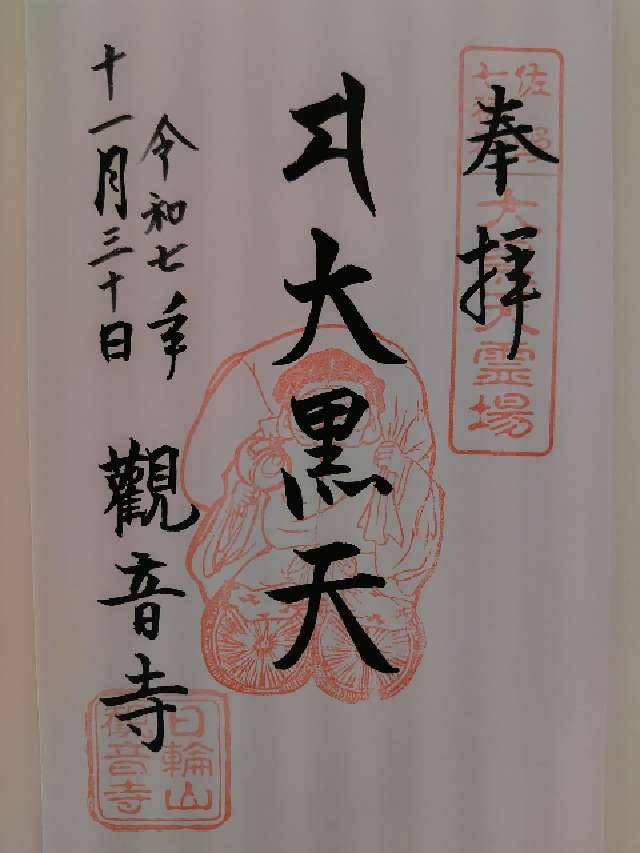 奉拝
佐野
七福神
大黒天霊場
大黒天
令和七年
十一月三十日
觀音寺
日輪山
観音寺